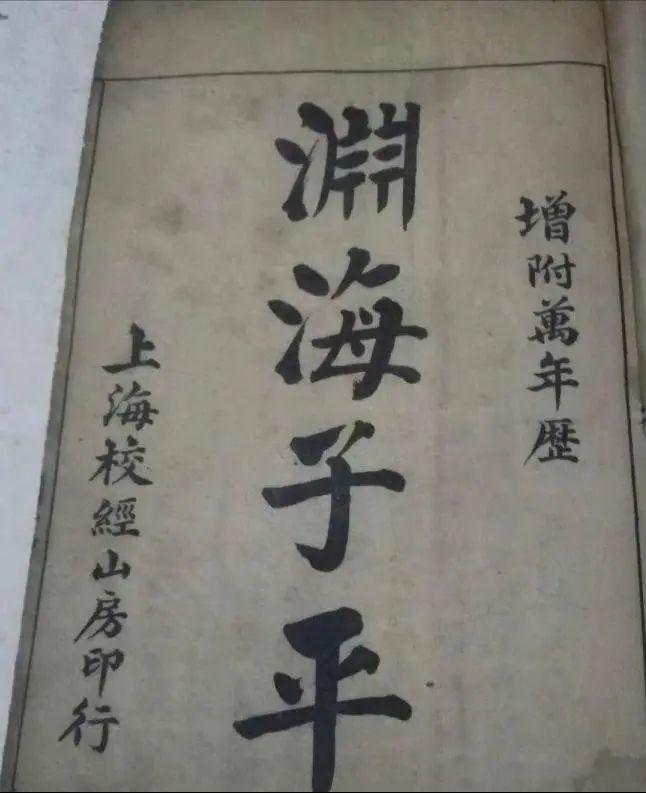 增附萬年歷
淵海子平
上海校經山房印行